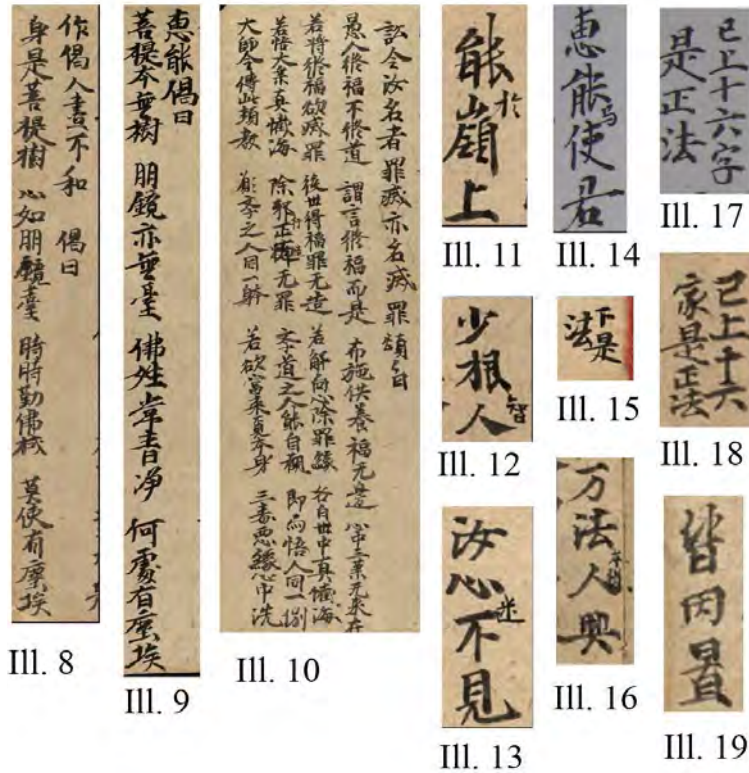 作偈人書不和 偈曰
身是菩提樹 心如朋鏡臺 時時勤佛拭 莫使有塵埃
Ill. 8
惠能偈曰
菩提本無樹 朋鏡亦無臺 佛姓常青淨 何處有塵埃
Ill. 9
訟令汝名者罪滅亦名滅罪頌曰
愚人修福不修道 謂言修福而是 布施供養福无邊 心中三業元來在
若將修福欲滅罪 後世得福罪无造 若解向心除罪緣 各自世中真懺海
若悟大乘真懺海 除邪行正造无罪 學道之人能自觀 即與悟人同一例
大師令傳此頓教 願學之人同一躰 若欲當來覓本身 三毒惡緣心中洗
Ill. 10
能於嶺上
Ill. 11
少根智人
Ill. 12
汝迷心不見
Ill. 13
惠能与使君
Ill. 14
下是
法
Ill. 15
万法人興
Ill. 16
已上十六字
是正法
Ill. 17
已上十六
家是正法
Ill. 18
皆因置
Ill. 19